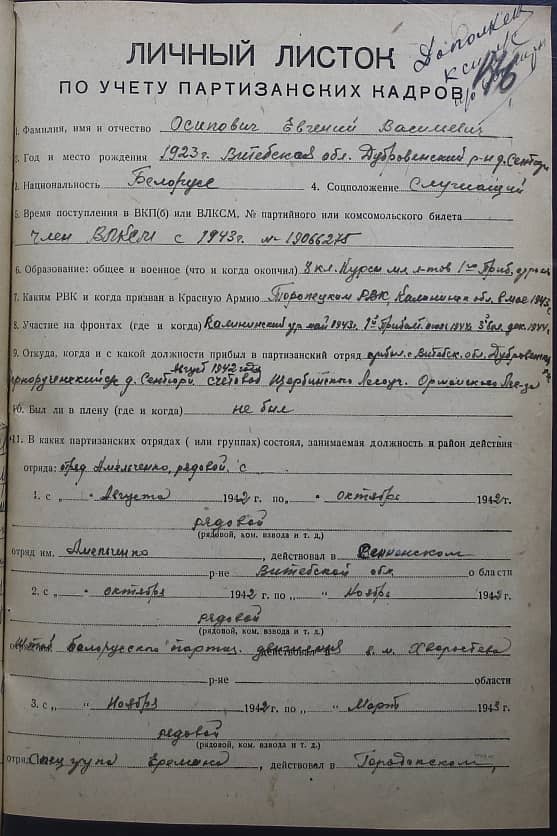 ЛИЧНЫЙ ЛИСТОК
ПО УЧЕТУ ПАРТИЗАНСКИХ КАДРОВ
1. Фамилия, имя и отчество Осипович Евгений Васильевич
2. Год и место рождения 1923 г. Витебская обл. Дубровенский р-н д.
3. Национальность Белорус 4. Соцположение Служащий
5. Время поступления в ВКП(б) или ВЛКСМ, № партийного или комсомольского билета
член ВЛКСМ с 1943 г. № 19066275
6. Образование: общее и военное (что и когда окончил) кл. Курсы мл л-тов 1го Приб.
7. Каким РВК и когда призван в Красную Армию Торопецким РВК, Калининск обл. в мае 1943
8. Участие на фронтах (где и когда) Калининский май 1943 г. 1й Прибалт. 1944
9. Откуда, когда и с какой должности прибыл в партизанский отряд прибыл с Витебск. обл. Дубровенск
Август 1942 года
д. счетовод
10. Был ли в плену (где и когда) не был
11. В каких партизанских отрядах ( или группах) состоял, занимаемая должность и район действия
отряда: отряд Амельченко, рядовой, с
1. с „ Августа 1942 г. по „ октябрь 1942 г.
рядовой
(рядовой, ком. взвода и т. д.)
отряд им. Амельченко, действовал в Сенненском
р-не Витебской обл о области
2. с „ октября 1942 г. по „ " Ноябрь 1942 г.
рядовой
(рядовой, ком. взвода и т. д.)
Белорусского партиз. движения в м.
р-не области
3. с „ " Ноября 1942 г. по „ " Март 1943 г.
рядовой
(рядовой, ком. взвода и т. д.)
отряд Спецгрупа, действовал в Городокском,